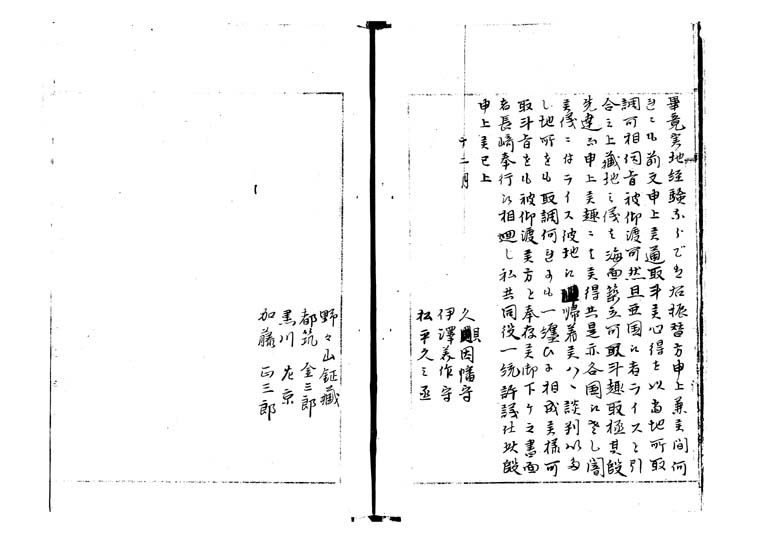 畢竟実地経験無之候てハ右振替方申上兼候間何
れニも前文申上候通取斗候心得を以当地所取
調可相伺旨被仰渡可然且亜国江者ライスと引
合之上蔵地之儀を海面築立可取斗趣取極其段
先達而申上候趣ニも候得共是亦各国江差し闇
候儀ニ付ライス彼地江帰着候ハヽ談判いたし
し地所をも取調何れニも一纏ひニ相成候様可
取斗旨をも被仰渡候方と奉存候御下ケ之書面
者長崎奉行江相廻し私共同役一統評議仕此段
申上候已上
十二月
久因幡守
伊澤美作守
松平久之丞
野々山鉦蔵
都筑金三郎
黒川左京
加藤正三郎